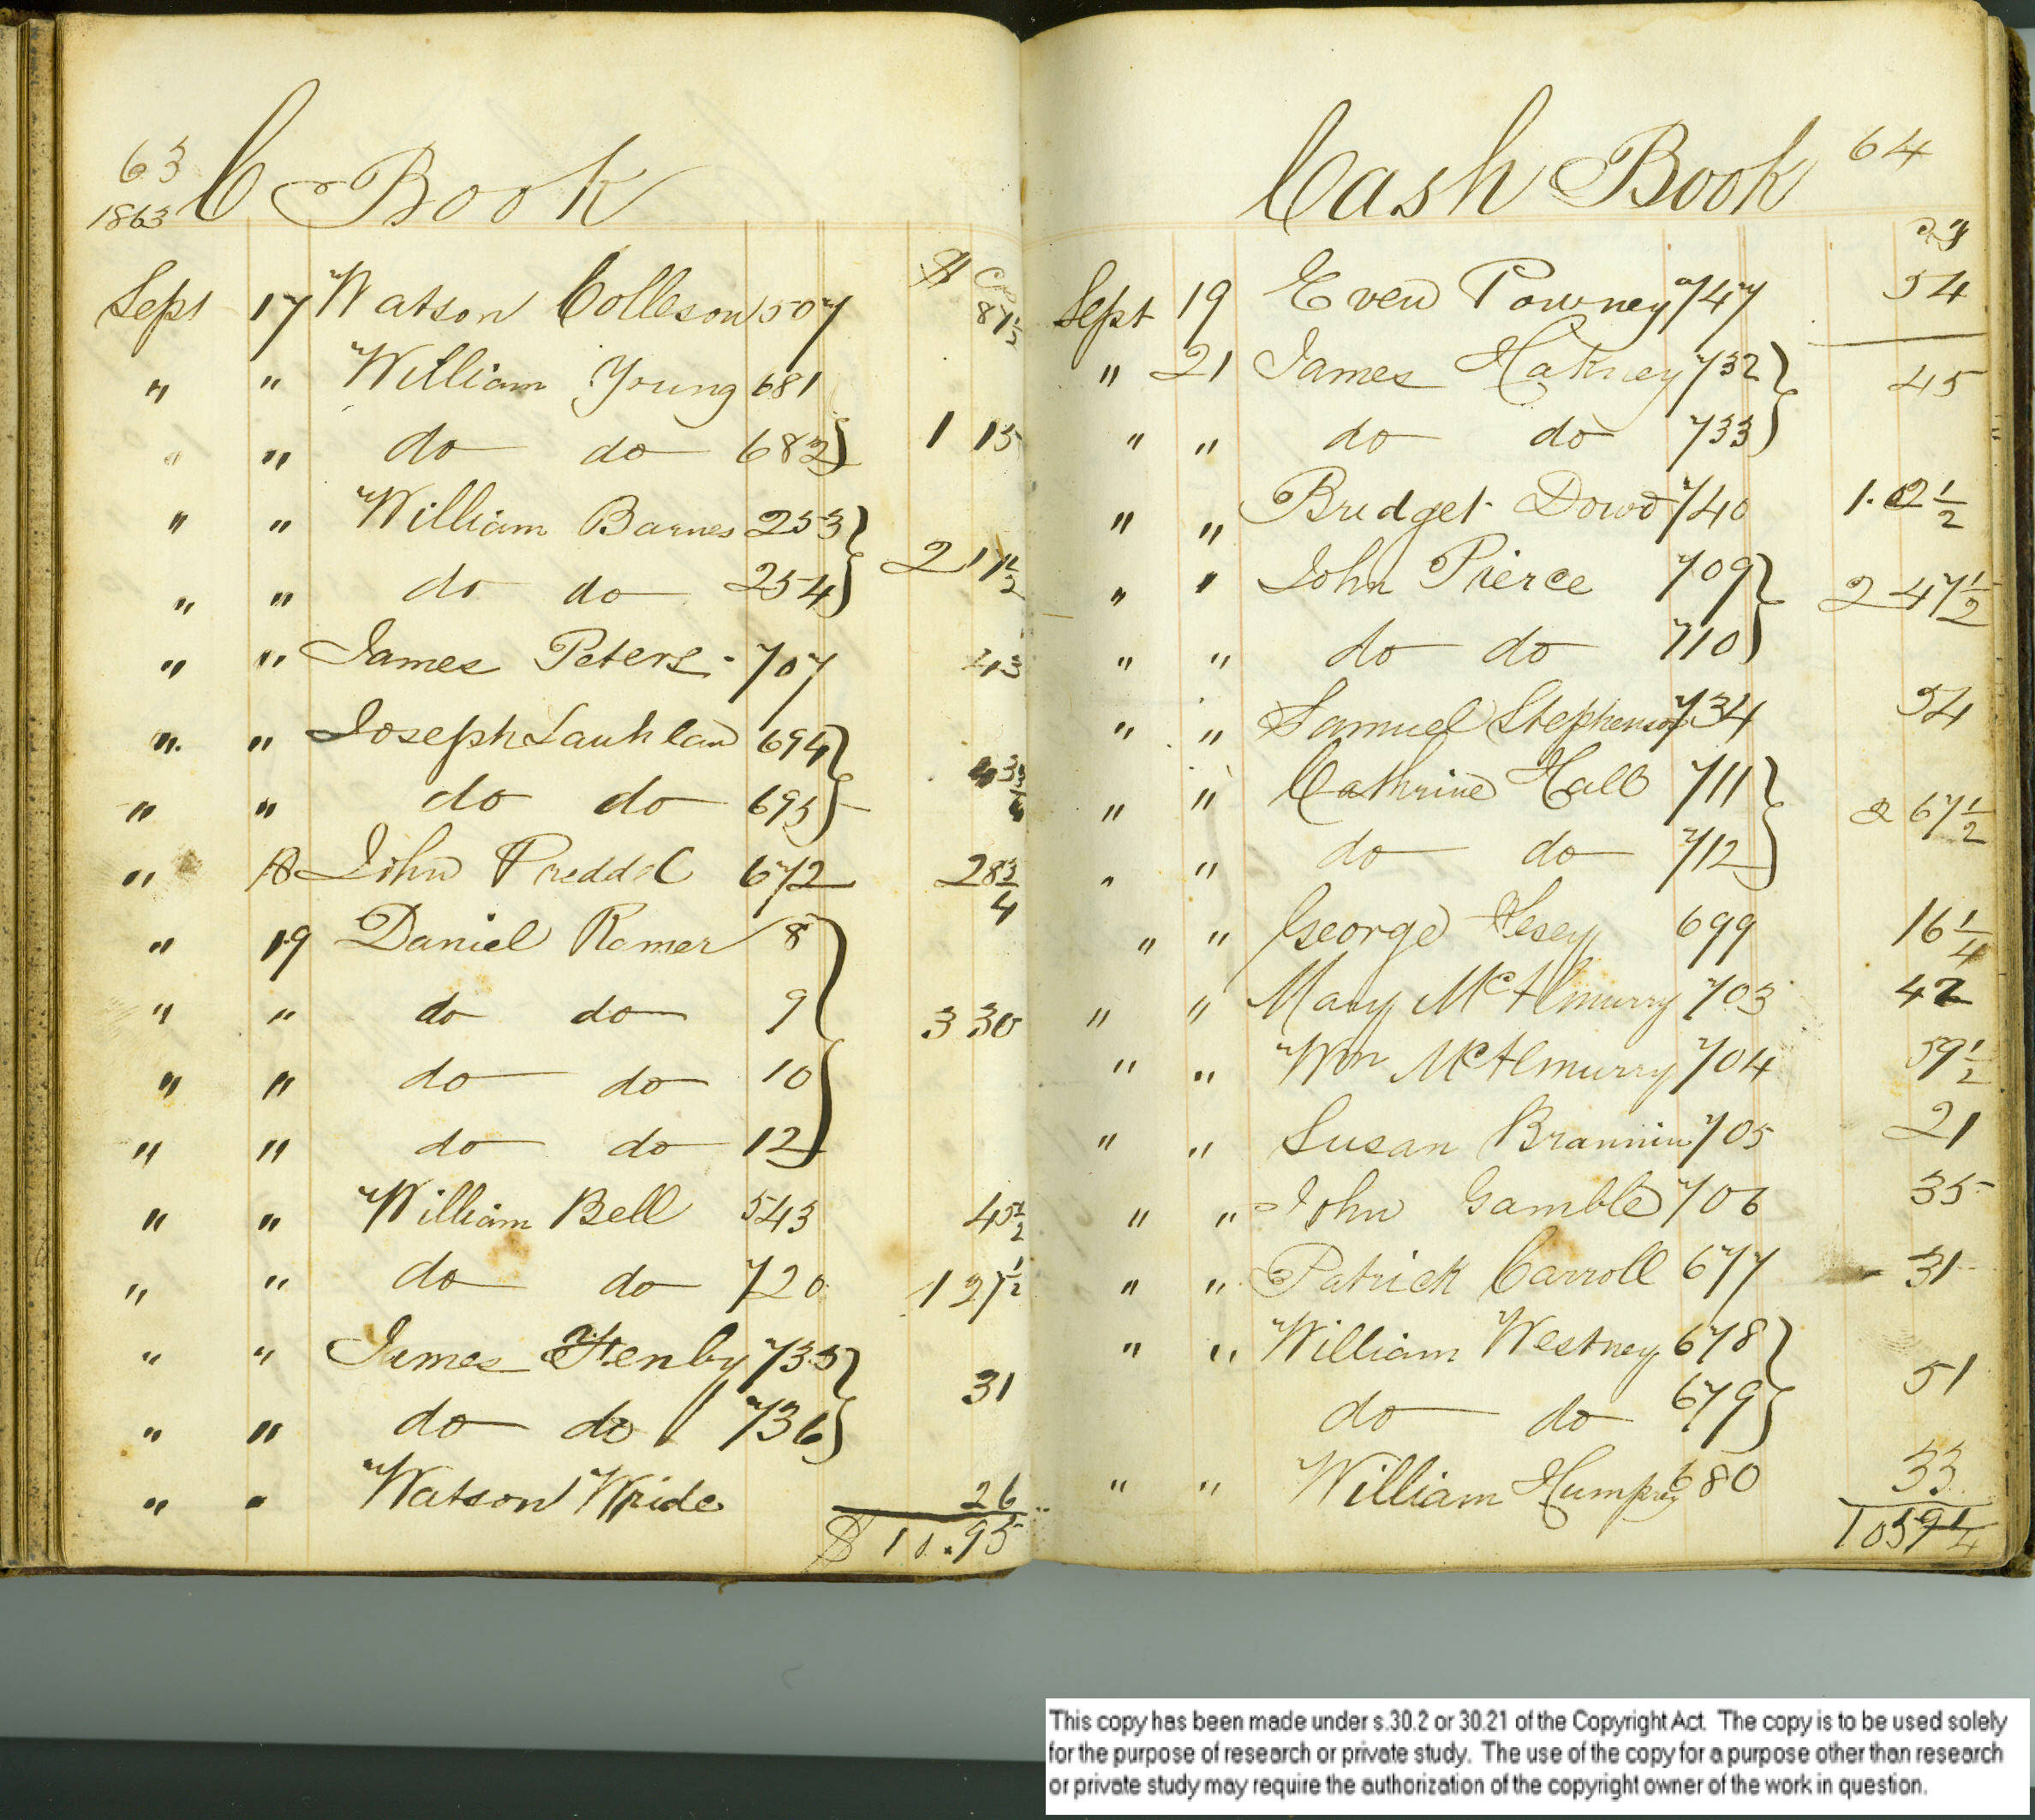 63 C Book
1863
$ c
Sept 17 Watson Colleson 507 87½
" " William Young 681
" " do do 682 } 1 15
" " William Barnes 253
" " do do 254 } 2 17½
" " James Peters 707 43
" " Joseph Lauhlan 694
" " do do 695 } 43¾
" John Preddel 672 28¾
" 19 Daniel Romer 8
" " do do 9
3 30
" " do do 10
" " do do 12
" " William Bell 543 45½
" " do do 720 1 27½
" " James Henby 735
" " do do 736 } 31
" " Watson Wride 26
$ 11.95
Cash Book 64
Sept 19 Even Powney 747 54
" 21 James Hakney 732 } 45
" " do do 733
" " Bridget Dowd 740 1.02½
" " John Pierce 709 } 2 47½
" " do do 710
" " Samuel Stephenson 734 54
" " Cathrine Hall 711 } 2 67½
" " do do 712
" " George Hesey 699 16¼
" " Mary McAlmurry 703 42
" " Wm McAlmurry 704 59½
" " Susan Brannin 705 21
" " John Gamble 706 35
" " Patrick Carroll 677 31
" " William Westney 678 } 51
do do 679
" " William Humprey 680 33
10 59¼
This copy has been made under s.30.2 or 30.21 of the Copyright Act. The copy is to be used solely
for the purpose of research or private study. The use of the copy for a purpose other than research
or private study may require the authorization of the copyright owner of the work in question.